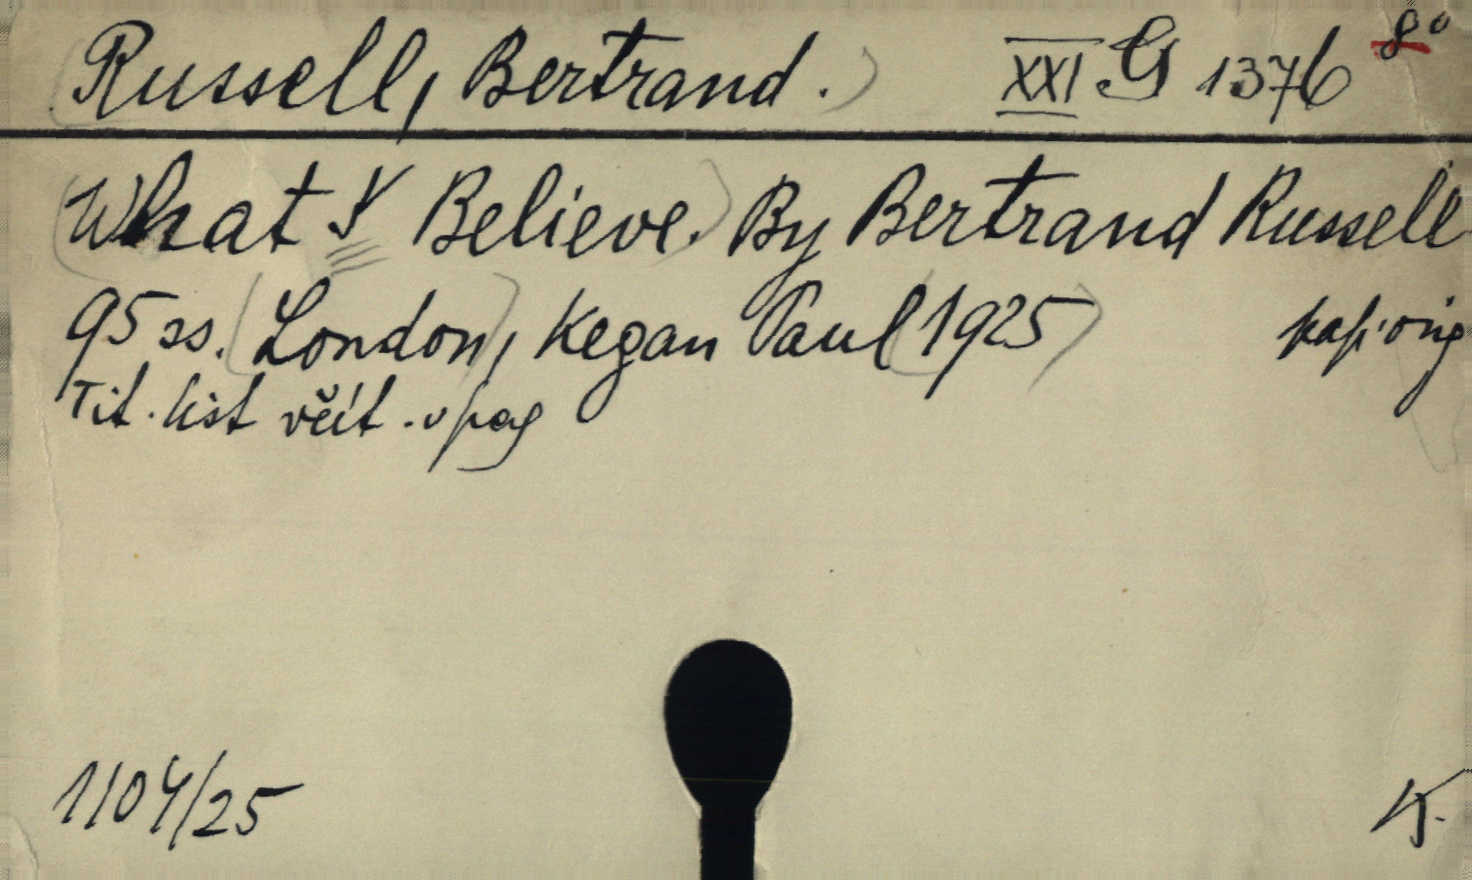 Russell, Bertrand. XXI G 1376 8°
What I Believe. By Bertrand Russell
95 ss. London, Kegan Paul 1925 kap. orig
Tit. list včít. v pag
1104/25
K.